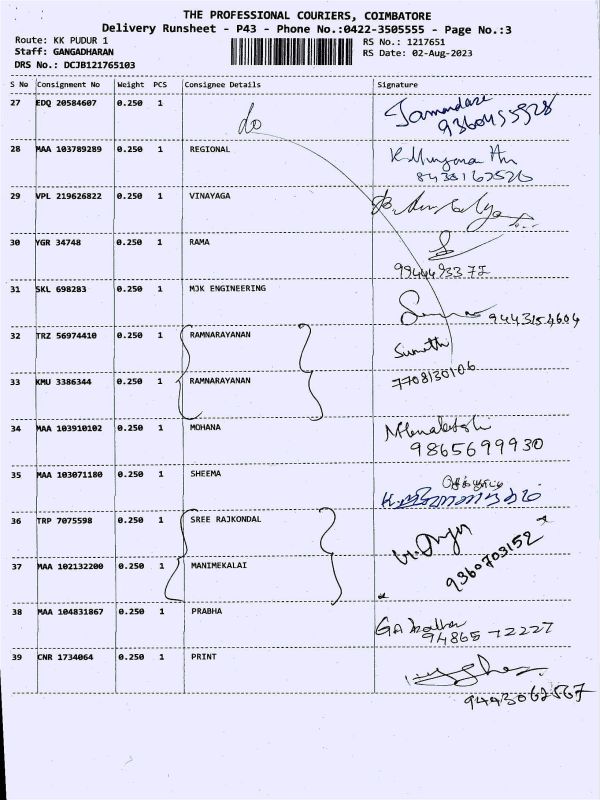 THE PROFESSIONAL COURIERS, COIMBATORE
Delivery Runsheet - P43 - Phone No.:0422-3505555 - Page No.:3
Route: KK PUDUR 1 RS No.: 1217651
Staff: GANGADHARAN RS Date: 02-Aug-2023
DRS No.: DCJB121765103
S No Consignment No Weight PCS Consignee Details Signature
27 EDQ 20584607 0.250 1 do
9360455928
28 MAA 103789289 0.250 1 REGIONAL
8438162526
29 VPL 219626822 0.250 1 VINAYAGA
30 YGR 34748 0.250 1 RAMA
31 SKL 698283 0.250 1 MJK ENGINEERING
9443154604
32 TRZ 56974410 0.250 1 RAMNARAYANAN Sumathi
33 KMU 3386344 0.250 1 RAMNARAYANAN 7708130106
34 MAA 103910102 0.250 1 MOHANA
9865699930
35 MAA 103071180 0.250 1 SHEEMA
36 TRP 7075598 0.250 1 SREE RAJKONDAL
37 MAA 102132200 0.250 1 MANIMEKALAI 9360703152
38 MAA 104831867 0.250 1 PRABHA
94865 72227
39 CNR 1734064 0.250 1 PRINT
9443062567